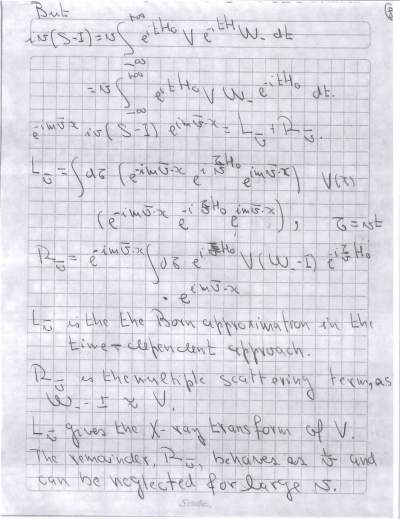 But
i v (S-I) = v ∫_{-∞}^{+∞} e^{itH_0} V e^{-itH} W_- dt
= v ∫_{-∞}^{+∞} e^{itH_0} V W_- e^{-itH_0} dt.
e^{-im\vec{v}·x} iv (S-I) e^{im\vec{v}·x} = L_{\vec{v}} + R_{\vec{v}}.
L_{\vec{v}} = ∫ dτ (e^{-im\vec{v}·x} e^{i\frac{τ}{v}H_0} e^{im\vec{v}·x}) V(x)
(e^{-im\vec{v}·x} e^{-i\frac{τ}{v}H_0} e^{im\vec{v}·x}), τ = vt
R_{\vec{v}} = e^{-im\vec{v}·x} ∫ dτ e^{i\frac{τ}{v}H_0} V (W_- - I) e^{-i\frac{τ}{v}H_0}
· e^{im\vec{v}·x}
L_{\vec{v}} is the the Born approximation in the
time-dependent approach.
R_{\vec{v}} is the multiple scattering term, as
W_- - I ≈ V.
L_{\vec{v}} gives the X-ray transform of V.
The remainder, R_{\vec{v}}, behaves as \frac{1}{v} and
can be neglected for large v.